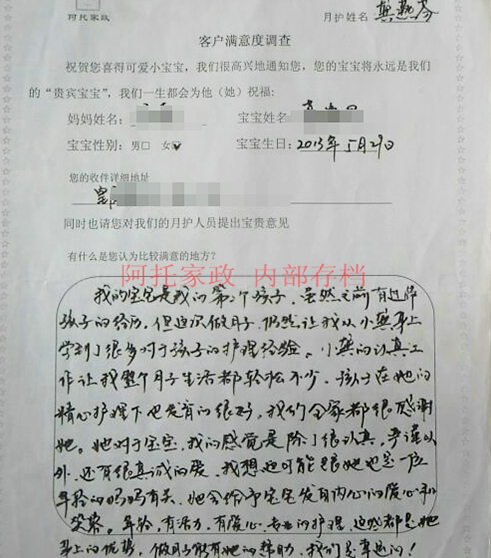 阿托家政
月护姓名: 樊
客户满意度调查
祝贺您喜得可爱小宝宝，我们很高兴地通知您，您的宝宝将永远是我们
的“贵宾宝宝”，我们一生都会为他（她）祝福:
妈妈姓名: 宝宝姓名
宝宝性别: 男□ 女 宝宝生日: 2013年5月29日
您的收件详细地址
同时也请您对我们的月护人员提出宝贵意见
有什么是您认为比较满意的地方?
阿托家政 内部存档
我的宝宝是我的第2个孩子，虽然之前有过带
孩子的经历，但这次做月子，仍然让我从小樊身上
学到了很多对于孩子的护理经验。小樊的认真工
作让我整个月子生活都轻松不少，孩子在她的
精心护理下也发育的很好，我们全家都很感谢
她。她对于宝宝，我的感觉是除了很认真，严谨以
外，还有很真诚的爱，我想这可能跟她也是一位
年轻的妈妈有关，她会给予宝宝发自内心的爱心和
笑容。年轻，有活力，有爱心，专业的护理，这些都是她
身上的优势，做月子能有她的帮助，我们